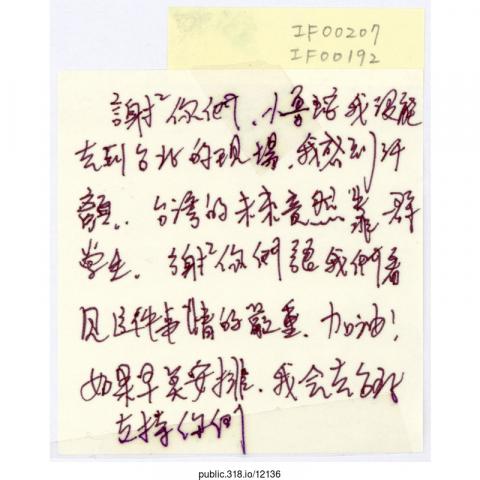 IF00207
IF00192
謝²你們,小勇球我沒能
去到台北的現場,我感到汗
顏.. 台灣的未來竟然靠群
學生. 謝²你們 語我們看
見這件事情的嚴重. 加油!
如果早真安排,我會去台北
支持你們
public.318.io/12136